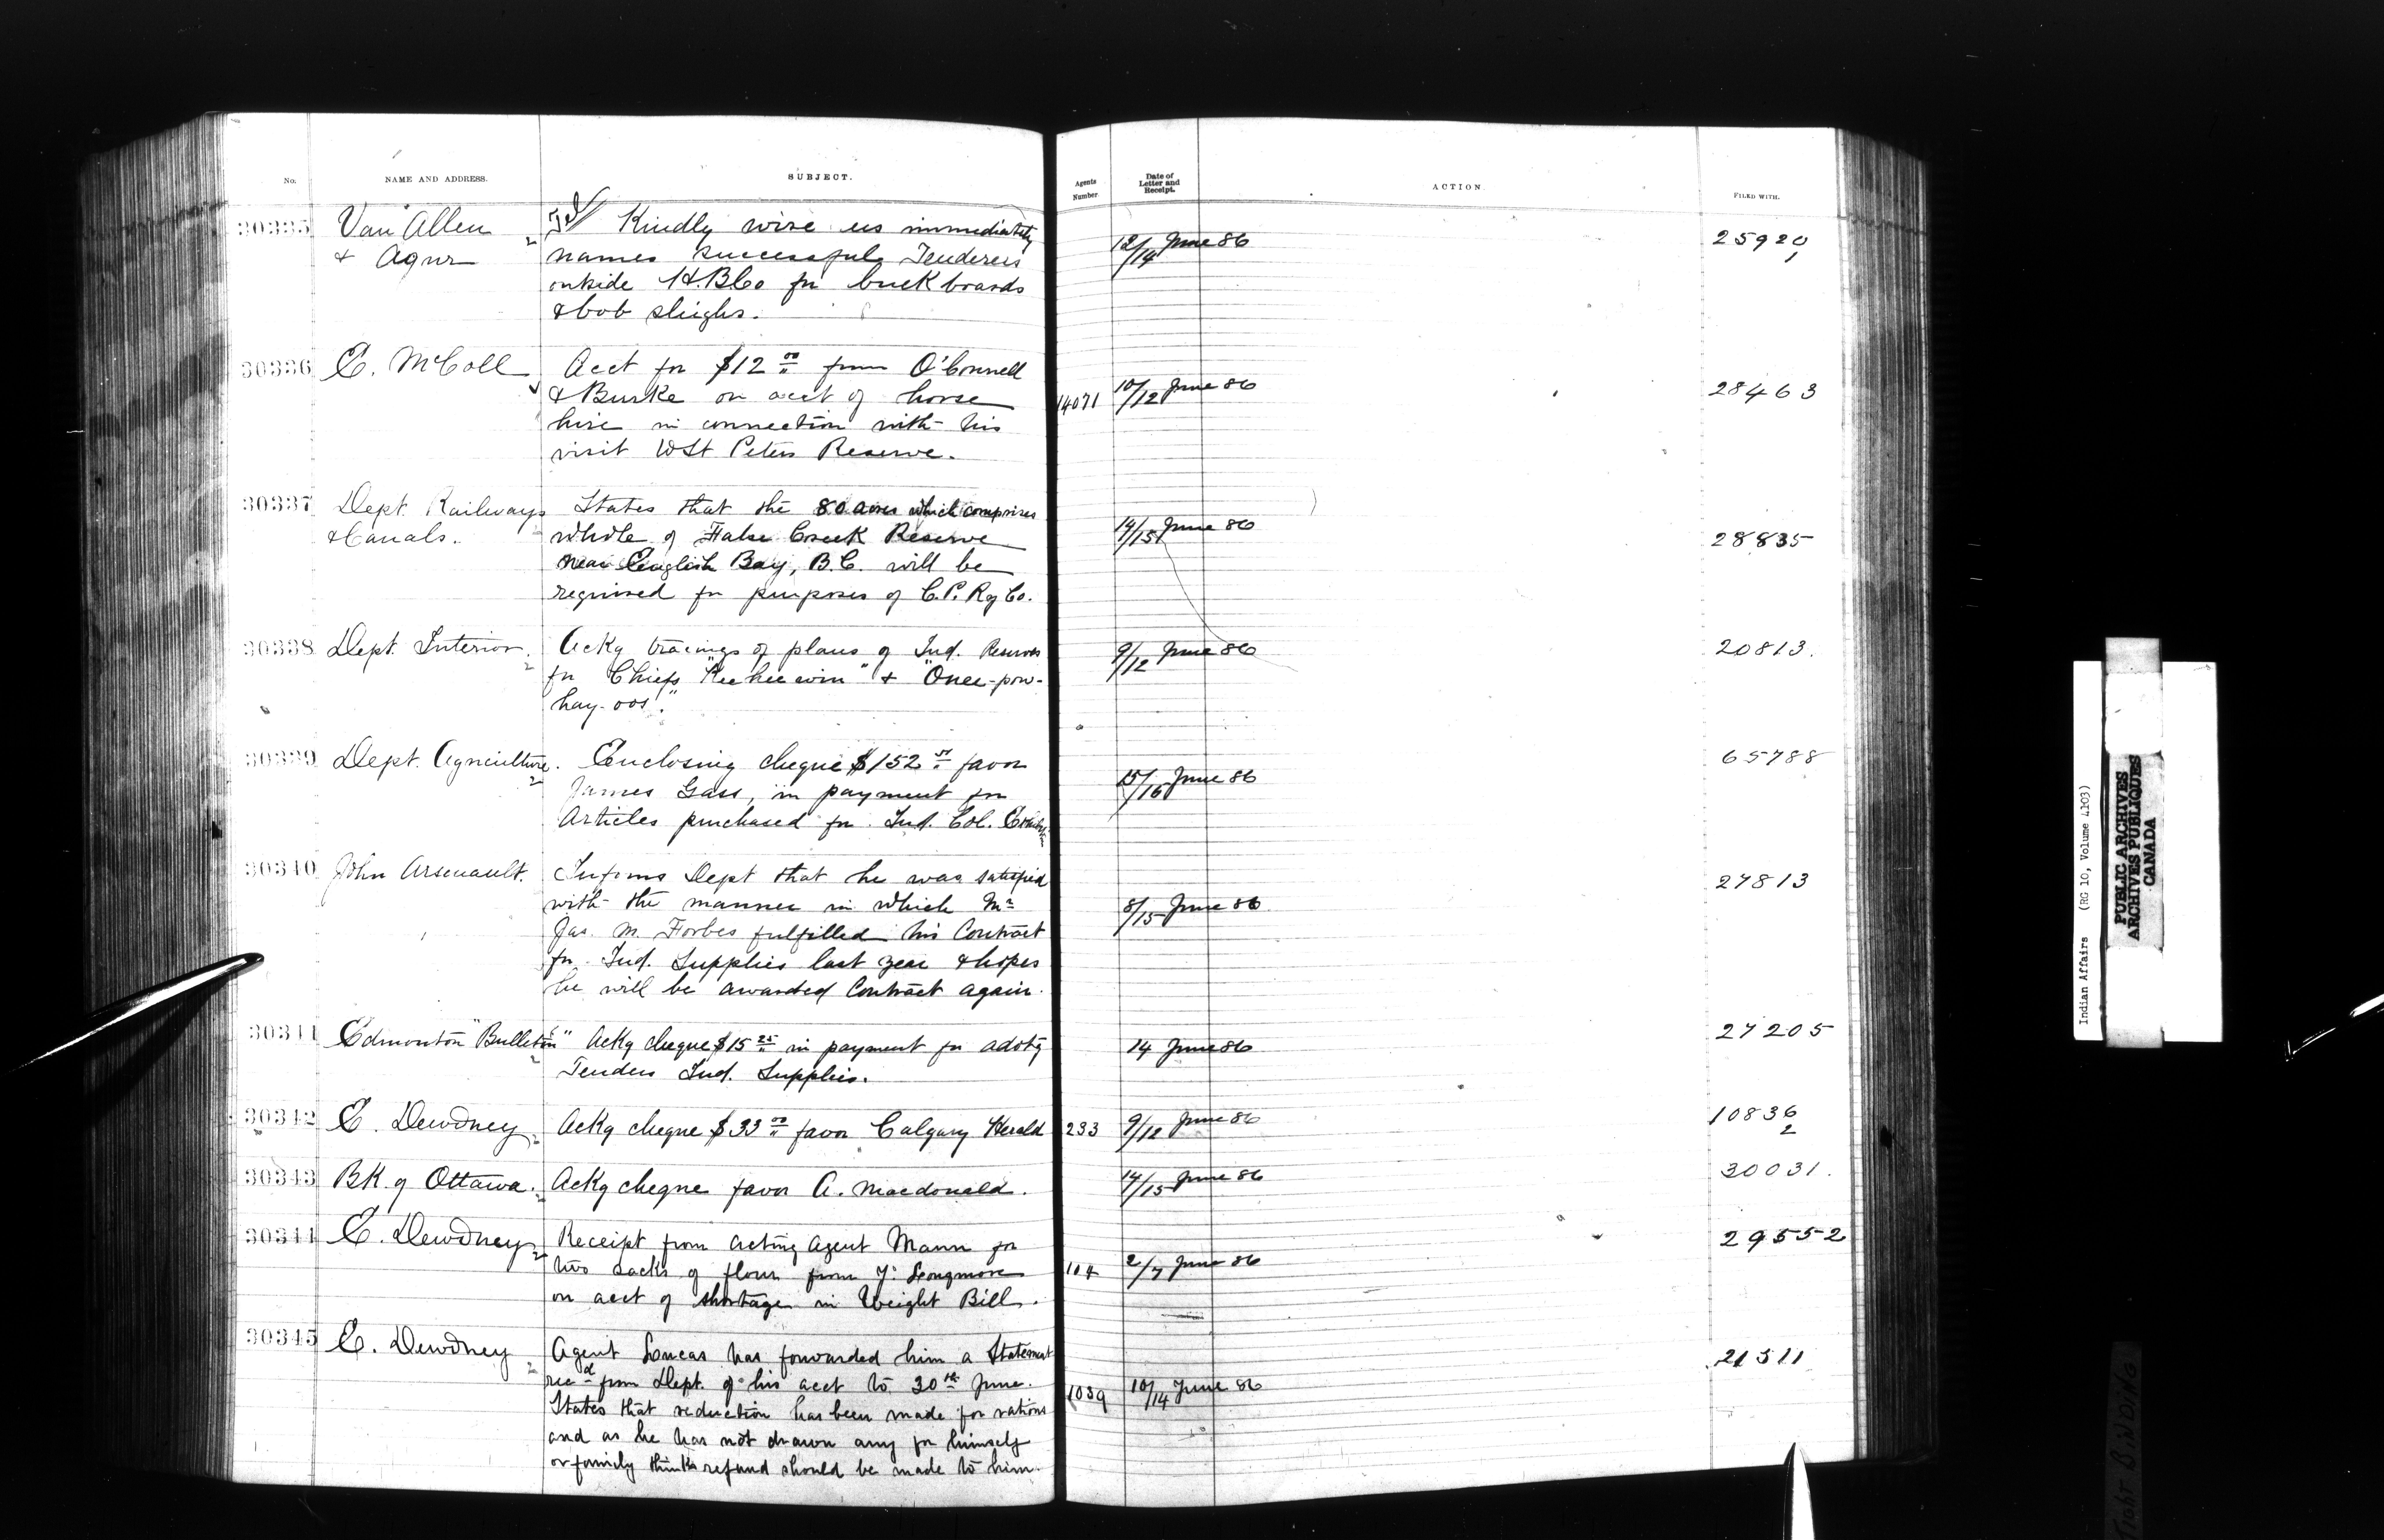 No. NAME AND ADDRESS. SUBJECT. Agents Number. Date of Letter and Receipt. ACTION. FILED WITH.
30335 Van Allen Tel Kindly wire us immediately
& Agur names successful Tenderers 12/14 June 86 25920
outside H.B Co for buckboards 1
& bob sleighs.
30336 E. McColl Acct for $12 00 from O'Connell
& Burke on acct of horse 14071 10/12 June 86 28463
hire in connection with his
visit to St Peters Reserve.
30337 Dept. Railways States that the 80 acres which comprises
& Canals. whole of False Creek Reserve 14/15 June 86 28835
near English Bay, B.C. will be
required for purposes of C.P. Ry Co.
30338 Dept. Interior. Ackg tracings of plans of Ind. Reserves 9/12 June 86 20813.
2 for Chiefs "Keeheewin" & "Onee-pow-
hay-oos".
30339 Dept. Agriculture. Enclosing cheque $152 favor 65788
2 James Gass, in payment for 15/16 June 86
Articles purchased for Ind. Col. Exhibition
30340 John Arsenault. Informs Dept that he was satisfied 27813
with the manner in which Mr 8/15 June 86
Jas. M. Forbes fulfilled his Contract
for Ind. Supplies last year & hopes
he will be awarded Contract again.
30341 Edmonton "Bulletin" Ackg cheque $15 25 in payment for advtg 14 June 86 27205
2 Tenders Ind. Supplies.
30342 E. Dewdney Ackg cheque $33 00 favor Calgary Herald 233 9/12 June 86 10836
2 2
30343 Bk. of Ottawa. Ackg cheque favor A. Macdonald. 14/15 June 86 30031.
2
30344 E. Dewdney Receipt from acting Agent Mann for 29552
2 two sacks of flour from Longmore 104 2/7 June 86
on acct of shortage in Weight Bill.
30345 E. Dewdney Agent Lucas has forwarded him a Statement 21511
2 recd from Dept. of his acct to 30th June. 1039 10/14 June 86
States that reduction has been made for rations
and as he has not drawn any for himself
or family thinks refund should be made to him.
Indian Affairs (RG 10, Volume 4103)
PUBLIC ARCHIVES
ARCHIVES PUBLIQUES
CANADA
TIGHT BINDING